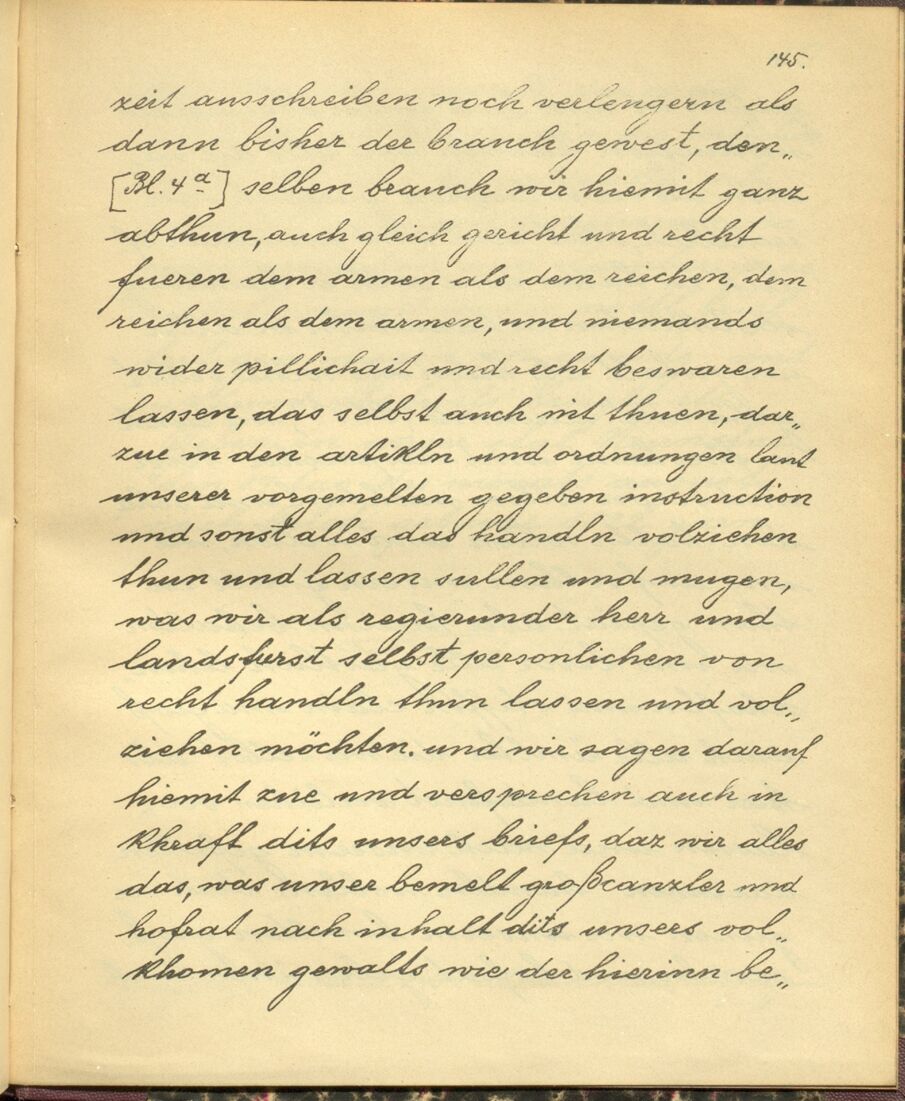 145.
zeit ausschreiben noch verlengern als
dann bisher der brauch gewest, den„
[Bl. 4ª] selben brauch wir hiemit ganz
abthun, auch gleich gericht und recht
fueren dem armen als dem reichen, dem
reichen als dem armen, und niemands
wider pillichait und recht beswaren
lassen, das selbst auch nit thuen, dar„
zue in den artikln und ordnungen laut
unserer vorgemelten gegeben instruction
und sonst alles das handln volziehen
thun und lassen sullen und mugen,
was wir als regierunder herr und
landsfurst selbst personlichen von
recht handln thun lassen und vol„
ziehen möchten. und wir sagen darauf
hiemit zue und versprechen auch in
khraft dits unsers briefs, daz wir alles
das, was unser bemelt großcanzler und
hofrat nach inhalt dits unsers vol„
khomen gewalts wie der hierinn be„